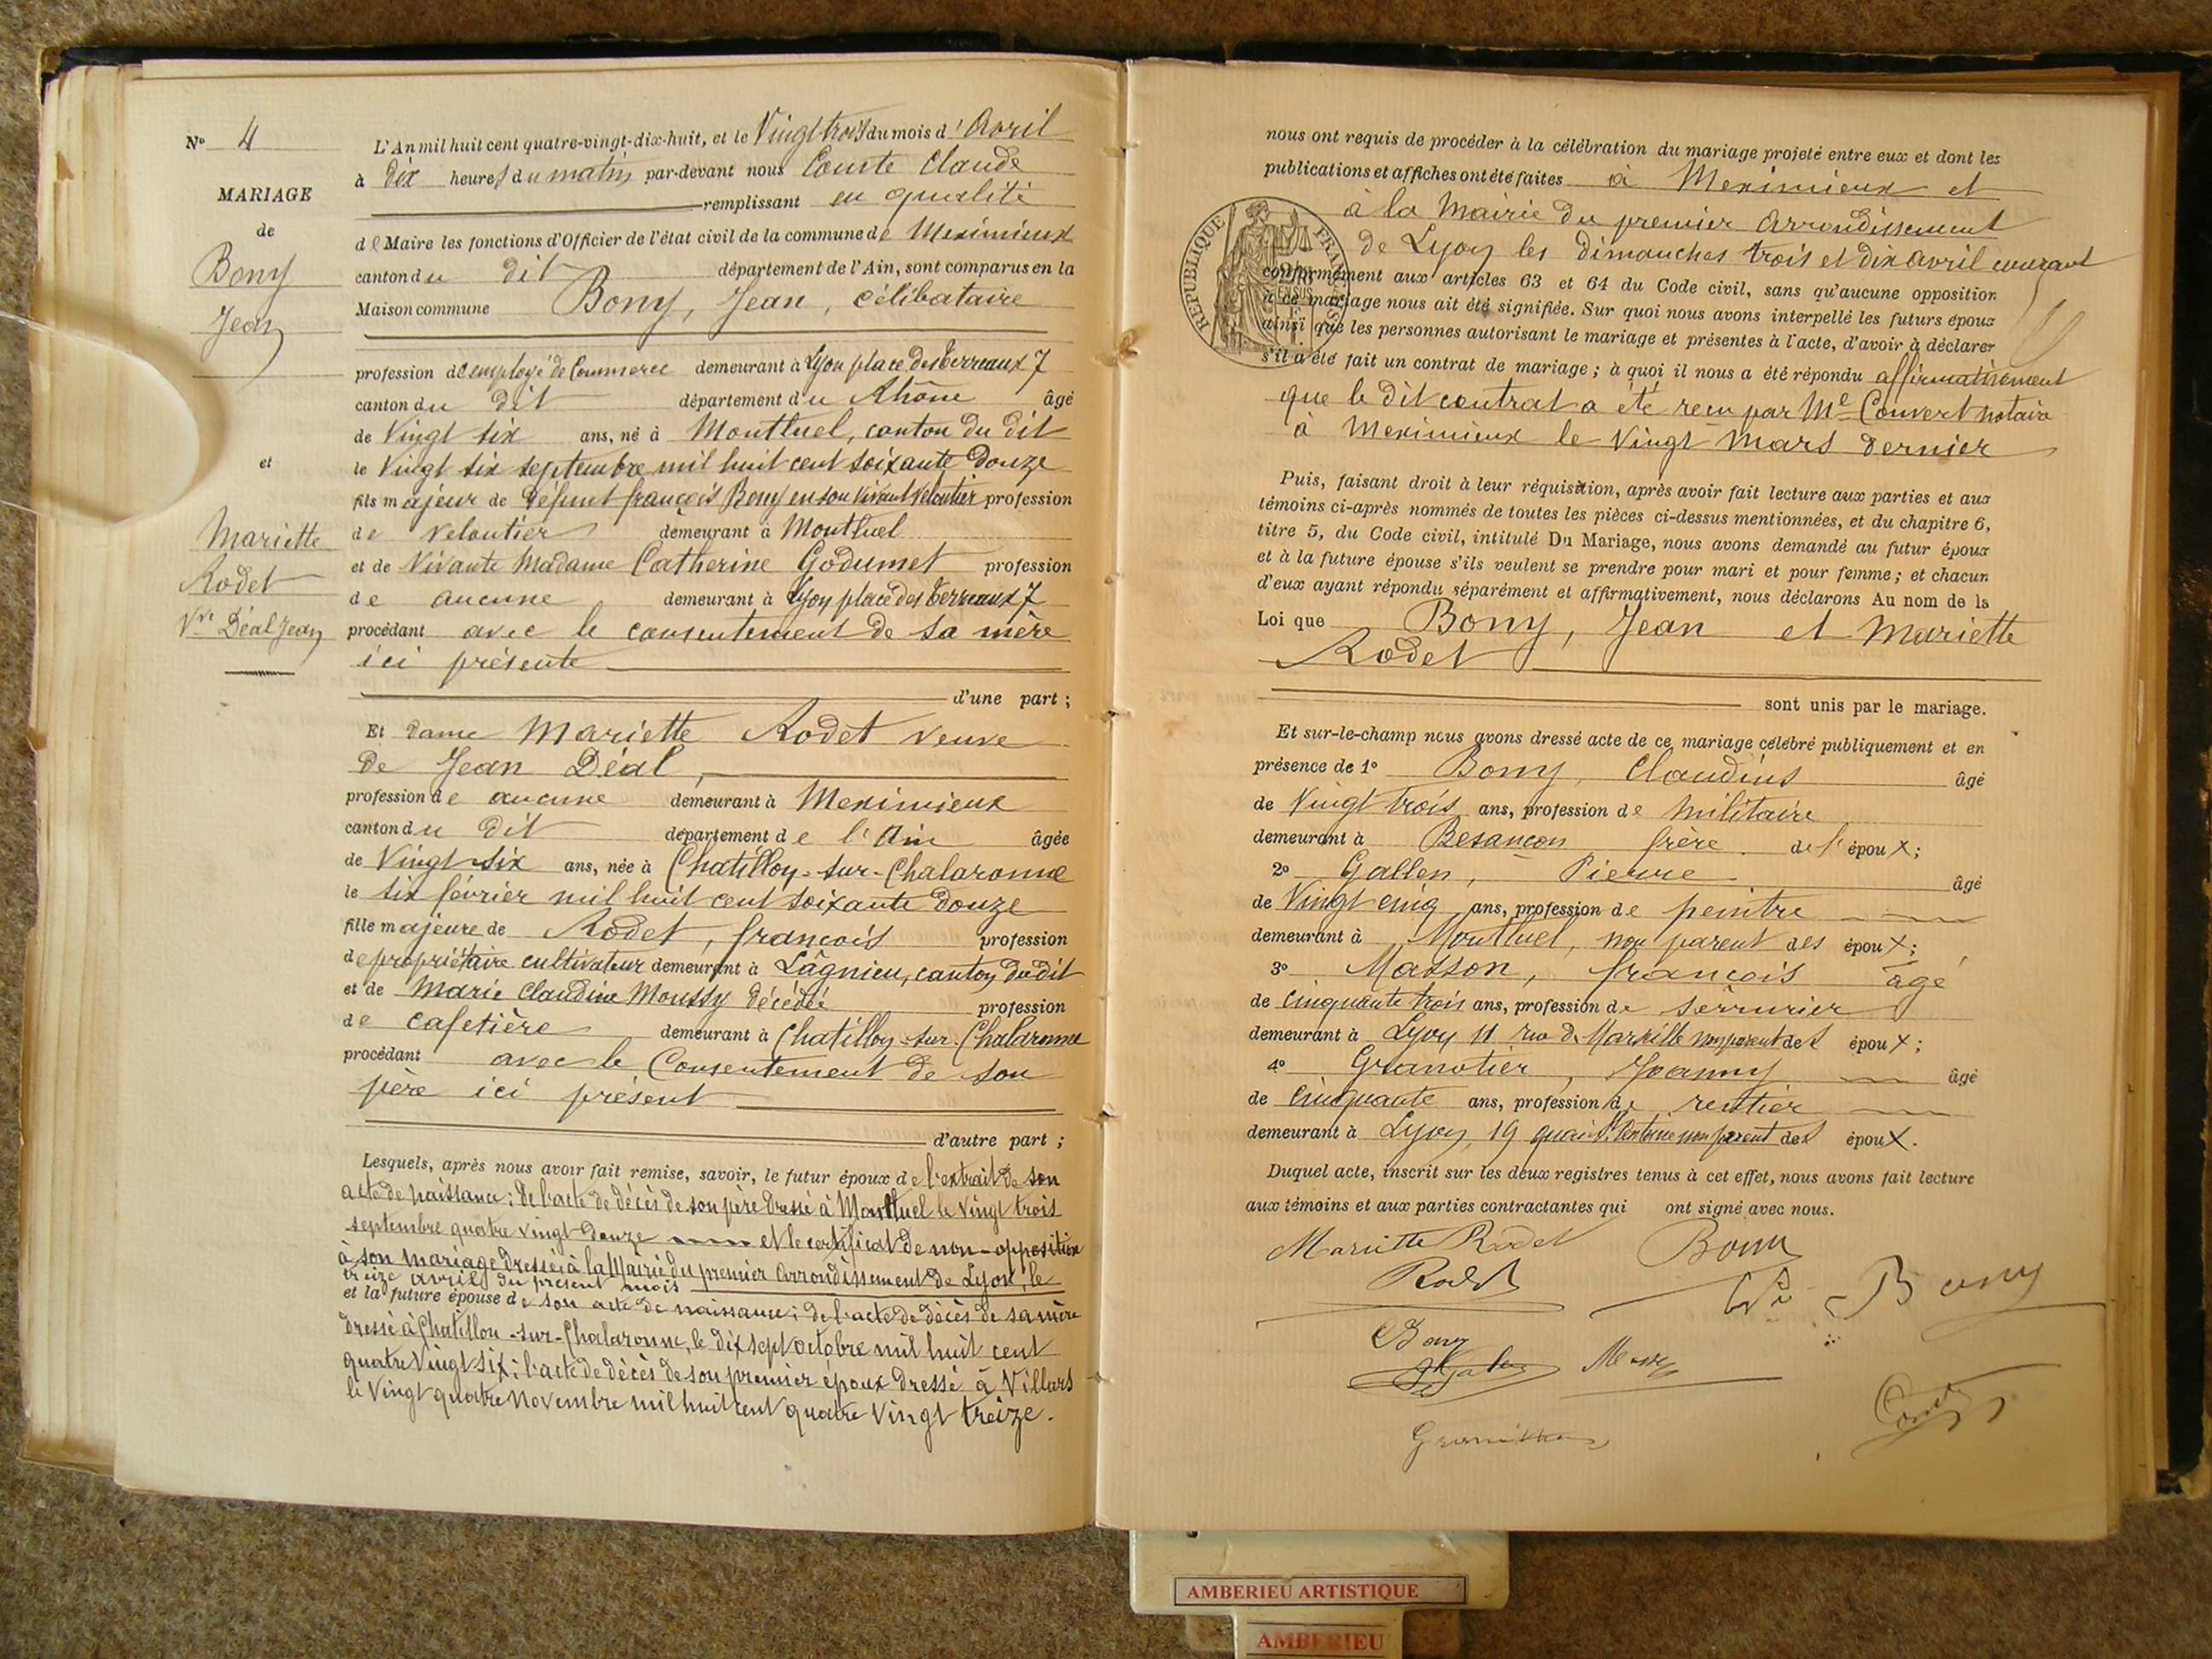 N° 4
MARIAGE
de
Bony
Jean
et
Mariette
Rodet
Vve Déal Jean
L'An mil huit cent quatre-vingt-dix-huit, et le Vingt trois du mois d'Avril
à dix heures du matin par-devant nous Comte Claude
remplissant en qualité
de Maire les fonctions d'Officier de l'état civil de la commune de Meximieux
canton du dit département de l'Ain, sont comparus en la
Maison commune Bony, Jean, célibataire
profession de employé de Commerce demeurant à Lyon place des Terreaux 7
canton du dit département du Rhône âgé
de Vingt six ans, né à Montluel, canton du dit
le Vingt six septembre mil huit cent soixante douze
fils majeur de défunt françois Bony en son vivant veloutier profession
de veloutier demeurant à Montluel
et de Vivante Madame Catherine Godumet profession
de aucune demeurant à Lyon place des Terreaux 7
procédant avec le consentement de sa mère
ici présente
d'une part ;
Et dame Mariette Rodet veuve
De Jean Déal,
profession de aucune demeurant à Meximieux
canton du dit département de l'Ain âgée
de Vingt-six ans, née à Chatillon-sur-Chalaronne
le six février mil huit cent soixante douze
fille majeure de Rodet, françois profession
de propriétaire cultivateur demeurant à Lâgnieu, canton du dit
et de Marie Claudine Moussy décédée profession
de cafetière demeurant à Chatillon-sur-Chalaronne
procédant avec le Consentement de son
père ici présent
d'autre part ;
Lesquels, après nous avoir fait remise, savoir, le futur époux de l'extrait de son
acte de naissance ; de l'acte de décès de son père dressé à Montluel le vingt trois
septembre quatre vingt douze et le certificat de non-opposition
à son mariage dressée à la Mairie du premier Arrondissement de Lyon, le
treize avril du présent mois
et la future épouse de son acte de naissance ; de l'acte de décès de sa mère
dressé à Chatillon-sur-Chalaronne, le dix sept octobre mil huit cent
quatre Vingt six ; l'acte de décès de son premier époux dressé à Villars
le Vingt quatre Novembre mil huit cent quatre Vingt treize.
nous ont requis de procéder à la célébration du mariage projeté entre eux et dont les
publications et affiches ont été faites à Meximieux et
à la Mairie du premier Arrondissement
de Lyon les dimanches trois et dix avril courant
REPUBLIQUE FRANÇAISE
conformément aux articles 63 et 64 du Code civil, sans qu'aucune opposition
à ce mariage nous ait été signifiée. Sur quoi nous avons interpellé les futurs époux
ainsi que les personnes autorisant le mariage et présentes à l'acte, d'avoir à déclarer
s'il a été fait un contrat de mariage ; à quoi il nous a été répondu affirmativement
que le dit contrat a été reçu par Me Convert notaire
à Meximieux le Vingt Mars dernier
Puis, faisant droit à leur réquisition, après avoir fait lecture aux parties et aux
témoins ci-après nommés de toutes les pièces ci-dessus mentionnées, et du chapitre 6,
titre 5, du Code civil, intitulé Du Mariage, nous avons demandé au futur époux
et à la future épouse s'ils veulent se prendre pour mari et pour femme ; et chacun
d'eux ayant répondu séparément et affirmativement, nous déclarons Au nom de la
Loi que Bony, Jean et Mariette
Rodet
sont unis par le mariage.
Et sur-le-champ nous avons dressé acte de ce mariage célébré publiquement et en
présence de 1° Bony, Claudius âgé
de Vingt trois ans, profession de militaire
demeurant à Besançon frère de l'époux ;
2° Gallen, Pierre âgé
de Vingt cinq ans, profession de peintre
demeurant à Montluel, non parent des époux ;
3° Masson, françois âgé
de Cinquante trois ans, profession de serrurier
demeurant à Lyon 11 rue de Marseille non parent des époux ;
4° Granotier, Joanny âgé
de Cinquante ans, profession de rentier
demeurant à Lyon, 19 quai St Antoine non parent des époux.
Duquel acte, inscrit sur les deux registres tenus à cet effet, nous avons fait lecture
aux témoins et aux parties contractantes qui ont signé avec nous.
Mariette Rodet Bony
Rodet Bony
Bony
Masson
AMBERIEU ARTISTIQUE
AMBERIEU